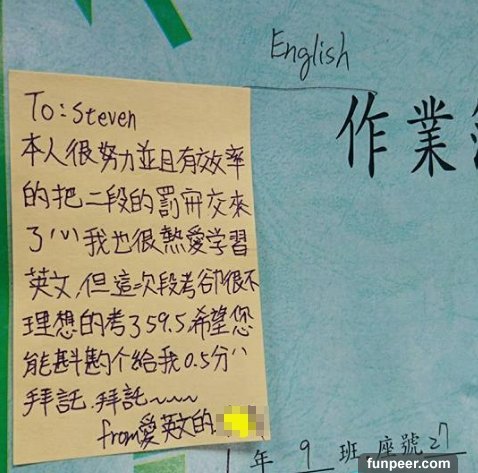 English
作業
To: Steven
本人很努力並且有效率
的把二段的罰冊交來
了\\\我也很熱愛学習
英文,但這次段考卻很不
理想的考了59.5,希望您
能斟酌个給我0.5分\\
拜託.拜託~~~~
from愛英文的
1年 9 班 座號27
funpeer.com